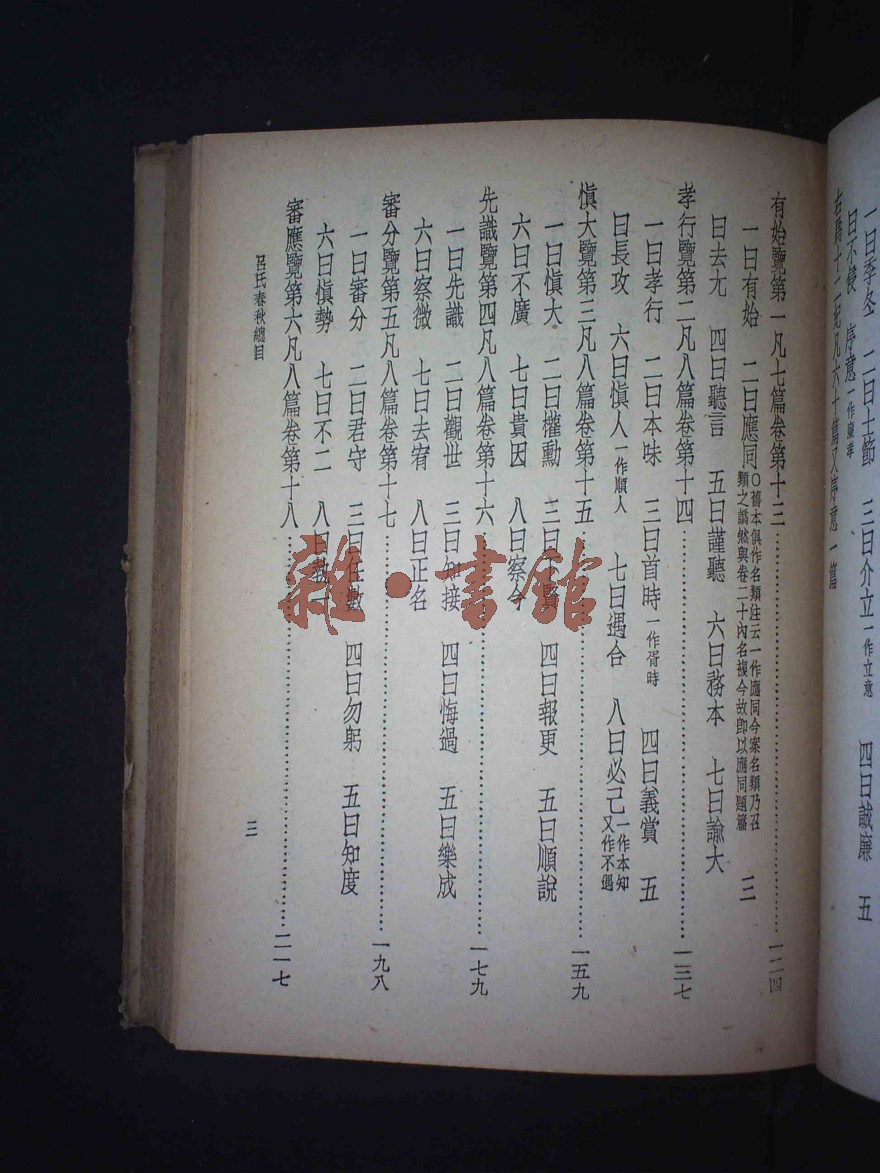 一曰季冬　二曰士節　三曰介立一作立意　四曰誠廉　五
曰不侵　序意一作廉孝
右爲十二紀凡六十篇又序意一篇
有始覽第一凡七篇卷第十三……一二四
一曰有始　二曰應同○舊本俱作名類注云一作應同今案名類乃召類之譌然與卷二十內名複今故卽以應同題篇　三
曰去尤　四曰聽言　五曰謹聽　六曰務本　七曰諭大
孝行覽第二凡八篇卷第十四……一三七
一曰孝行　二曰本味　三曰首時一作胥時　四曰義賞　五
曰長攻　六曰愼人一作順人　七曰遇合　八曰必己一作本知又作不遇
愼大覽第三凡八篇卷第十五……一五九
一曰愼大　二曰權勳　三曰下賢　四曰報更　五曰順說
六曰不廣　七曰貴因　八曰察今
先識覽第四凡八篇卷第十六……一七九
一曰先識　二曰觀世　三曰知接　四曰悔過　五曰樂成
六曰察微　七曰去宥　八曰正名
審分覽第五凡八篇卷第十七……一九八
一曰審分　二曰君守　三曰任數　四曰勿躬　五曰知度
六曰愼勢　七曰不二　八曰執一
審應覽第六凡八篇卷第十八……二一七
呂氏春秋總目　三
雜·書館